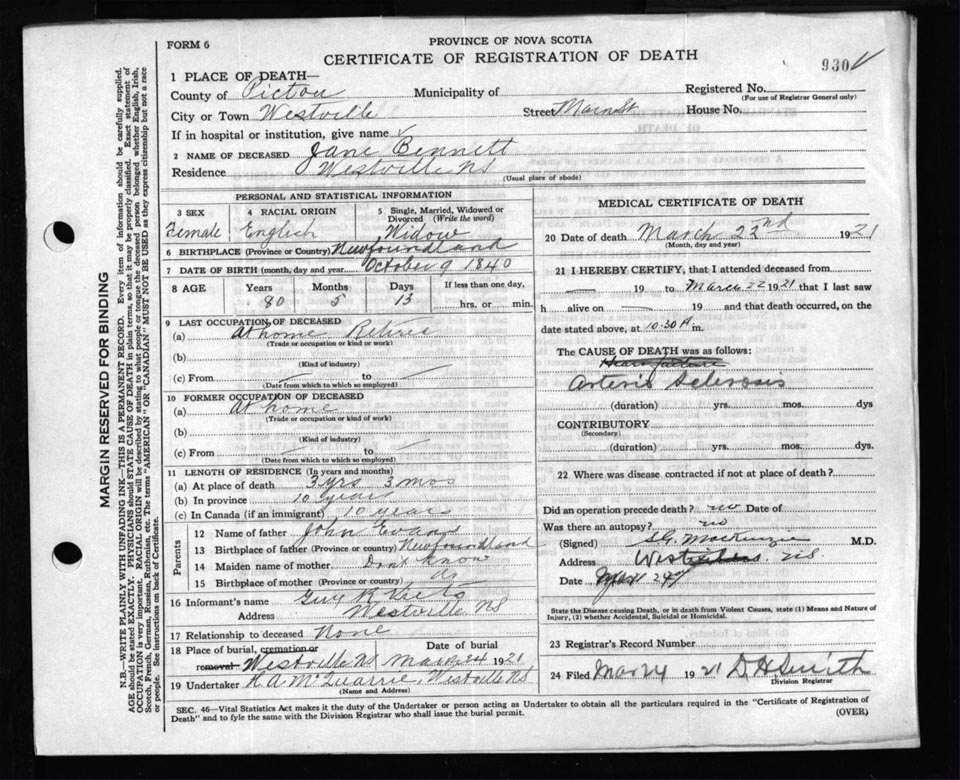 FORM 6
PROVINCE OF NOVA SCOTIA
CERTIFICATE OF REGISTRATION OF DEATH
930
1 PLACE OF DEATH—
County of Pictou Municipality of
Registered No.
(For use of Registrar General only)
City or Town Westville Street Main St House No.
If in hospital or institution, give name
2 NAME OF DECEASED Jane Bennett
Residence Westville NS
(Usual place of abode)
PERSONAL AND STATISTICAL INFORMATION
3 SEX
Female
4 RACIAL ORIGIN
English
5 Single, Married, Widowed or
Divorced (Write the word)
Widow
6 BIRTHPLACE (Province or Country) Newfoundland
7 DATE OF BIRTH (month, day and year) October 9 1840
8 AGE Years Months Days If less than one day,
80 5 13 hrs. or min.
9 LAST OCCUPATION OF DECEASED
(a) At home Retired
(Trade or occupation or kind or work)
(b)
(Kind of industry)
(c) From to
(Date from which to which so employed)
10 FORMER OCCUPATION OF DECEASED
(a) At home
(Trade or occupation or kind of work)
(b)
(Kind of industry)
(c) From to
(Date from which to which so employed)
11 LENGTH OF RESIDENCE (In years and months)
(a) At place of death 3 yrs 3 mos
(b) In province 10 years
(c) In Canada (if an immigrant) 10 years
Parents
12 Name of father John Evans
13 Birthplace of father (Province or country) Newfoundland
14 Maiden name of mother Dont Know
15 Birthplace of mother (Province or country) do
16 Informant's name Guy
Address Westville NS
17 Relationship to deceased None
18 Place of burial, cremation or Date of burial
removal Westville NS Mar 24 1921
19 Undertaker H A McQuarrie, Westville NS
(Name and Address)
MEDICAL CERTIFICATE OF DEATH
20 Date of death March 22nd 1921
(Month, day and year)
21 I HEREBY CERTIFY, that I attended deceased from
— 19 to March 22 1921 that I last saw
h alive on — 19 and that death occurred, on the
date stated above, at 10.30 A m.
The CAUSE OF DEATH was as follows:
Heart failure
Arterio Sclerosis
(duration) yrs. mos. dys
CONTRIBUTORY
(Secondary)
(duration) yrs. mos. dys.
22 Where was disease contracted if not at place of death?
Did an operation precede death? no Date of
Was there an autopsy? no
(Signed) MacKenzie M.D.
Address NS
Date
State the Disease causing Death, or in death from Violent Causes, state (1) Means and Nature of
Injury, (2) whether Accidental, Suicidal or Homicidal.
23 Registrar's Record Number
24 Filed Mar 24 1921 D H Smith
Division Registrar
SEC. 46—Vital Statistics Act makes it the duty of the Undertaker or person acting as Undertaker to obtain all the particulars required in the "Certificate of Registration of
Death" and to fyle the same with the Division Registrar who shall issue the burial permit.
(OVER)
MARGIN RESERVED FOR BINDING
N.B.—WRITE PLAINLY WITH UNFADING INK—THIS IS A PERMANENT RECORD. Every item of information should be carefully supplied.
AGE should be stated EXACTLY. PHYSICIANS should STATE CAUSE OF DEATH in plain terms, so that it may be properly classified. Exact statement of
OCCUPATION is very important. RACIAL ORIGIN will be described by stating to what people or tongue the deceased person belonged whether English, Irish,
Scotch, French, German, Russian, Ruthenian, etc. The terms "AMERICAN" OR "CANADIAN" MUST NOT BE USED as they express citizenship but not a race
or people. See instructions on back of Certificate.